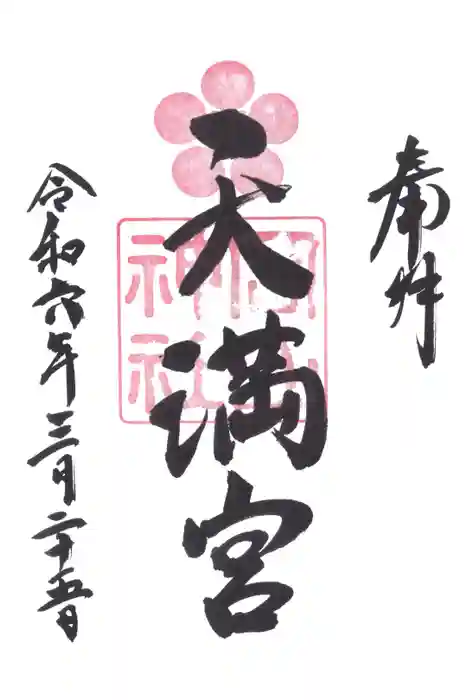 奉拝
天満宮
神社
令和六年三月二十五日